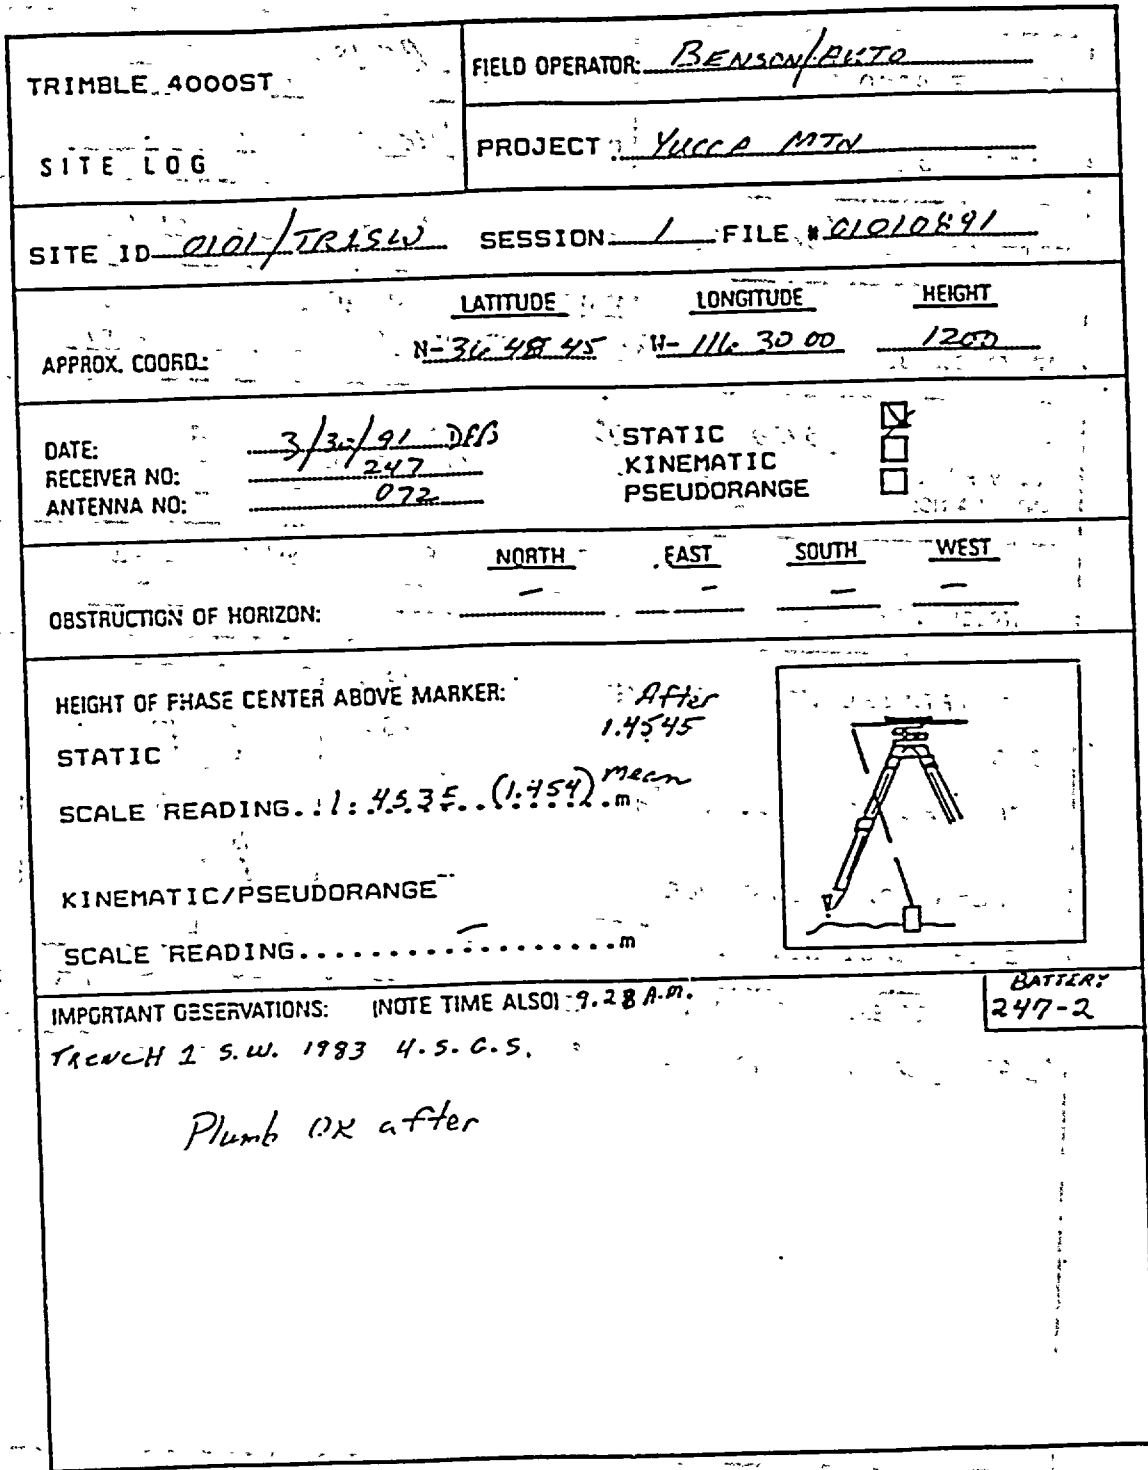 TRIMBLE 4000ST
SITE LOG
FIELD OPERATOR: BENSON/AUTO
PROJECT: YUCCA MTN
SITE ID 0101/TR1SW SESSION 1 FILE # 01010891
LATITUDE LONGITUDE HEIGHT
APPROX. COORD.: N-36 48 45 W-116 30 00 1200
DATE: 3/30/91 DFB
RECEIVER NO: 247
ANTENNA NO: 072
STATIC
KINEMATIC
PSEUDORANGE
NORTH EAST SOUTH WEST
OBSTRUCTION OF HORIZON: - - - -
HEIGHT OF PHASE CENTER ABOVE MARKER: After
1.4545
STATIC
SCALE READING..1.4535..(1.454) mean m
KINEMATIC/PSEUDORANGE
SCALE READING.........-.........m
IMPORTANT OBSERVATIONS: (NOTE TIME ALSO) 9.28 A.M.
BATTERY
247-2
TRENCH 1 S.W. 1983 U.S.G.S.
Plumb OK after